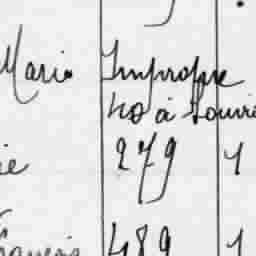 Marie Impropre
40 à Louvri
ie 279 1
François 489 1